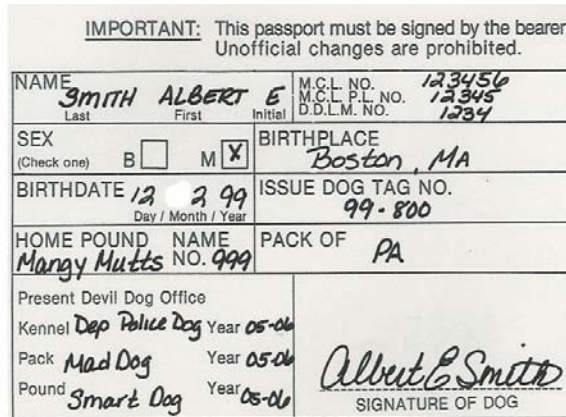 IMPORTANT: This passport must be signed by the bearer
Unofficial changes are prohibited.
NAME SMITH ALBERT E
Last First Initial
M.C.L. NO. 123456
M.C.L. P.L. NO. 12345
D.D.L.M. NO. 1234
SEX
(Check one) B M X
BIRTHPLACE
Boston, MA
BIRTHDATE 12 2 99
Day / Month / Year
ISSUE DOG TAG NO.
99-800
HOME POUND NAME
Mangy Mutts NO. 999
PACK OF
PA
Present Devil Dog Office
Kennel Dep Police Dog Year 05-06
Pack Mad Dog Year 05-06
Pound Smart Dog Year 05-06
Albert E Smith
SIGNATURE OF DOG